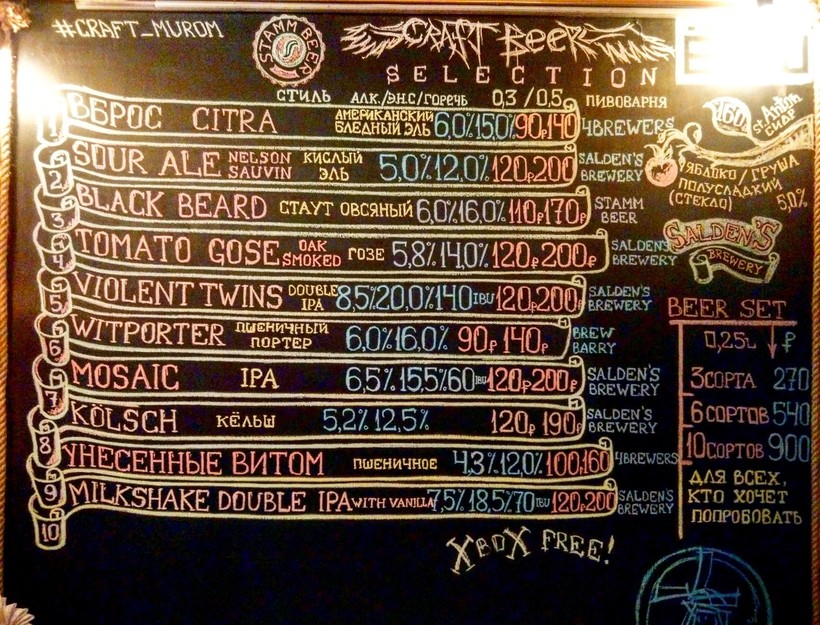 #CRAFT_MUROM
STAMM BEER
CRAFT BEER
SELECTION
СТИЛЬ АЛК./ЭН.С/ГОРЕЧЬ 0,3 / 0,5 ПИВОВАРНЯ
1 ВБРОС CITRA АМЕРИКАНСКИЙ БЛЕДНЫЙ ЭЛЬ 6,0% 15,0% 90₽ 140 4BREWERS
2 SOUR ALE NELSON SAUVIN КИСЛЫЙ ЭЛЬ 5,0% 12,0% 120₽ 200 SALDEN'S BREWERY
3 BLACK BEARD СТАУТ ОВСЯНЫЙ 6,0% 16,0% 110₽ 170₽ STAMM BEER
4 TOMATO GOSE OAK SMOKED ГОЗЕ 5,8% 14,0% 120₽ 200₽ SALDEN'S BREWERY
5 VIOLENT TWINS DOUBLE IPA 8,5% 20,0% 140 IBU 120₽ 200₽ SALDEN'S BREWERY
6 WITPORTER ПШЕНИЧНЫЙ ПОРТЕР 6,0% 16,0% 90₽ 140₽ BREW BARRY
7 MOSAIC IPA 6,5% 15,5% 60 IBU 120₽ 200₽ SALDEN'S BREWERY
8 KÖLSCH КЁЛЬШ 5,2% 12,5% 120₽ 190₽ SALDEN'S BREWERY
9 УНЕСЕННЫЕ ВИТОМ ПШЕНИЧНОЕ 4,3% 12,0% 100₽ 160 4BREWERS
10 MILKSHAKE DOUBLE IPA WITH VANILLA 7,5% 18,5% 70 IBU 120₽ 200 SALDEN'S BREWERY
XBOX FREE!
160
St. Anton
СИДР
ЯБЛОКО / ГРУША
ПОЛУСЛАДКИЙ
(СТЕКЛО) 5,0%
SALDEN'S
BREWERY
BEER SET
0,25L ₽
3 СОРТА 270
6 СОРТОВ 540
10 СОРТОВ 900
ДЛЯ ВСЕХ,
КТО ХОЧЕТ
ПОПРОБОВАТЬ